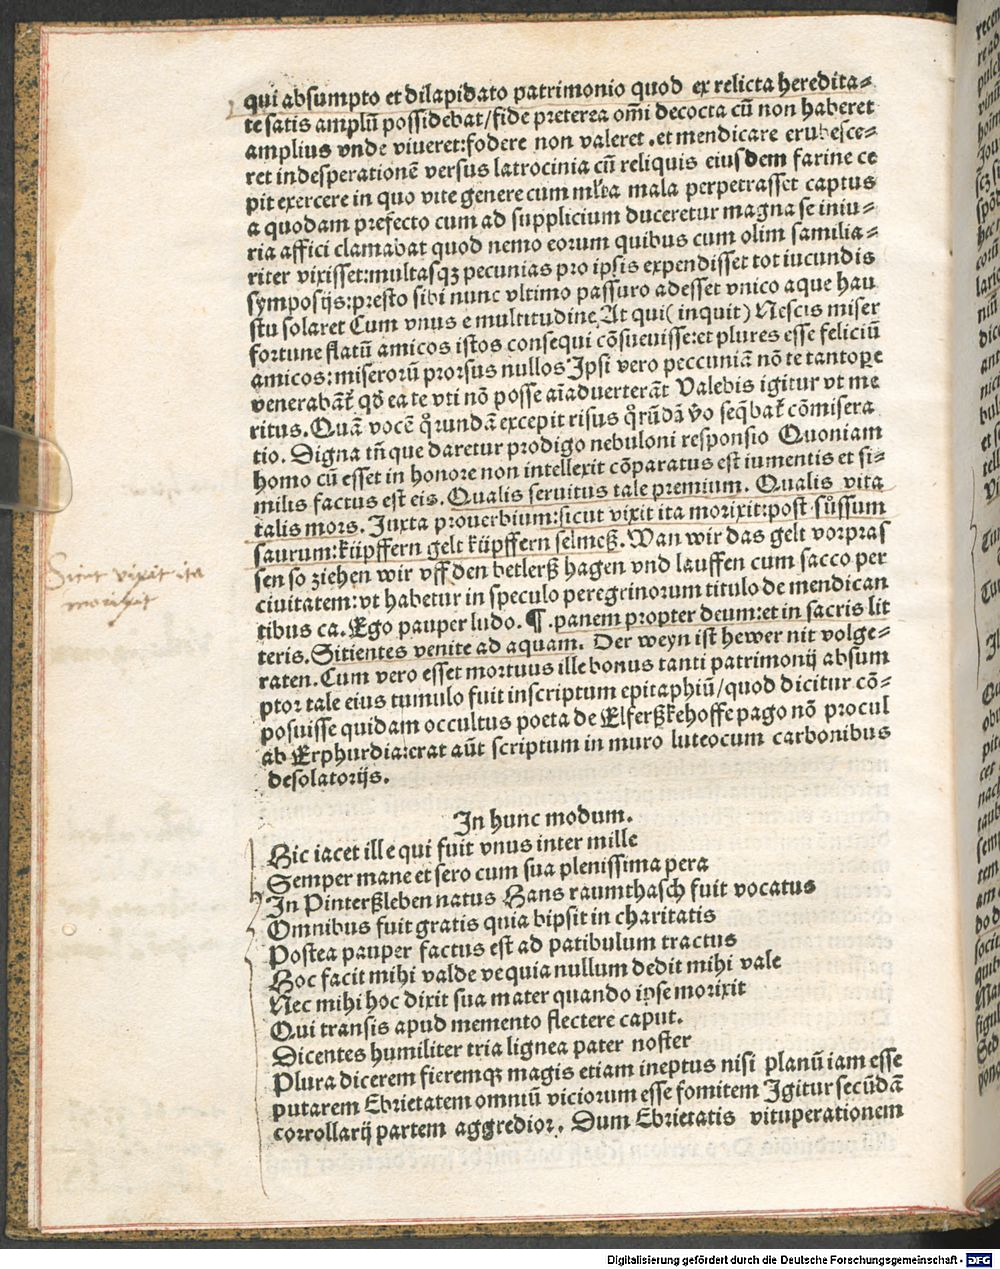 qui absumpto et dilapidato patrimonio quod ex relicta heredita⸗
te satis amplū possidebat/fide preterea om̄i decocta cū non haberet
amplius vnde viueret:fodere non valeret .et mendicare erubesce⸗
ret indesperationē versus latrocinia cū reliquis eiusdem farine ce
pit exercere in quo vite genere cum ml̄ta mala perpetrasset captus
a quodam prefecto cum ad supplicium duceretur magna se iniu⸗
ria affici clamabat quod nemo eorum quibus cum olim familia⸗
riter vixisset:multasqꝫ pecunias pro ipsis expendisset tot iucundis
symposijs:presto sibi nunc vltimo passuro adesset vnico aque hau
stu solaret Cum vnus e multitudine At qui( inquit) Nescis miser
fortune flatū amicos istos consequi cōsueuisse:et plures esse feliciū
amicos:miserorū prorsus nullos Ipsi vero peccuniā nō te tantope
venerabāt᷑ qď ea te vti nō posse aīaduerterāt Valebis igitur vt me
ritus. Quā vocē q̊rundā excepit risus q̊rūdā v̊o seq̄bat᷑ cōmisera
tio. Digna it̄que daretur prodigo nebuloni responsio Quoniam
homo cū esset in honore non intellexit cōparatus est iumentis et si⸗
milis factus est eis. Qualis seruitus tale premium. Qualis vita
talis mors. Juxta prouerbium:sicut vixit ita morixit:post sůssum
saurum:küpffern gelt küpffern selmeß. Wan wir das gelt vorpras
sen so ziehen wir vff den betlerß hagen vnd lauffen cum sacco per
ciuitatem:vt habetur in speculo peregrinorum titulo de mendican
tibus ca. Ego pauper ludo. ¶ .panem propter deum:et in sacris lit
teris. Sitientes venite ad aquam. Der weyn ist hewer nit volge⸗
raten. Cum vero esset mortuus ille bonus tanti patrimonij absum
ptor tale eius tumulo fuit inscriptum epitaphiū/quod dicitur cō⸗
posuisse quidam occultus poeta de Elferßkehoffe pago nō procul
ab Erphurdia:erat aūt scriptum in muro luteocum carbonibus
desolatorijs.
In hunc modum.
Hic iacet ille qui fuit vnus inter mille
Semper mane et sero cum sua plenissima pera
In Pinterßleben natus Hans raumthasch fuit vocatus
Omnibus fuit gratis quia bipsit in charitatis
Postea pauper factus est ad patibulum tractus
Hoc facit mihi valde ve quia nullum dedit mihi vale
Nec mihi hoc dixit sua mater quando ipse morixit
Qui transis apud memento flectere caput.
Dicentes humiliter tria lignea pater noster
Plura dicerem fieremqꝫ magis etiam ineptus nisi planū iam esse
putarem Ebrietatem omniū viciorum esse fomitem Igitur secūdā
corrollarij partem aggredior. Dum Ebrietatis vituperationem
Sicut vixit ita
morixit
Digitalisierung gefördert durch die Deutsche Forschungsgemeinschaft - DFG